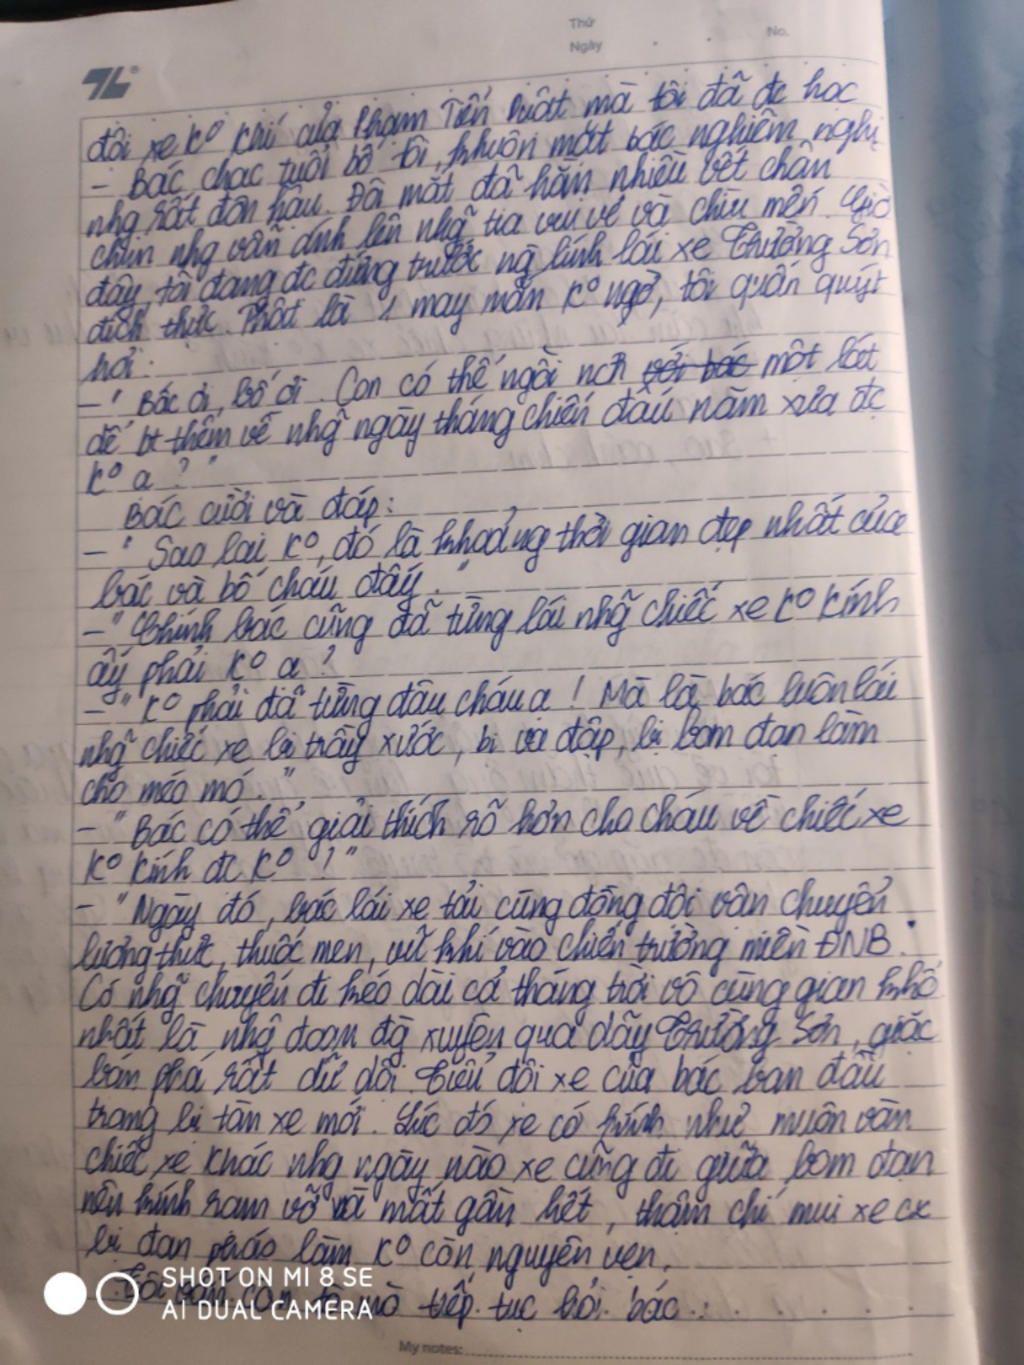 Thứ
Ngày
No.
TL
đội xe kº khí của Phạm Tiến Duật mà tôi đã đc học
- Bác chạc tuổi bố tôi, khuôn mặt bác nghiêm nghị
nhg rất đôn hậu. Đôi mắt đã hằn nhiều vết chân
chim nhg vẫn ánh lên nhg~ tia vui vẻ và chìu mến. Giờ
đây, tôi đang đc đứng trước ng lính lái xe Trường Sơn
đích thực. Thật là 1 may mắn kº ngờ, tôi quấn quýt
hỏi:
- " Bác ơi, bố ơi. Con có thể ngồi nch với bác một lát
để bt thêm về nhg~ ngày tháng chiến đấu năm xưa đc
kº ạ ? "
Bác cười và đáp:
- " Sao lại kº, đó là khoảng thời gian đẹp nhất của
bác và bố cháu đấy. "
- " Chính bác cũng đã từng lái nhg~ chiếc xe kº kính
ấy phải kº ạ ?
- " kº phải đã từng đâu cháu ạ ! Mà là bác luôn lái
nhg~ chiếc xe bị trầy xước, bị va đập, bị bom đạn làm
cho méo mó. "
- " Bác có thể giải thích rõ hơn cho cháu về chiếc xe
kº kính đc kº ? "
- " Ngày đó, bác lái xe tải cùng đồng đội vận chuyển
lương thực, thuốc men, vũ khí vào chiến trường miền ĐNB.
Có nhg~ chuyến đi kéo dài cả tháng trời vô cùng gian khổ
nhất là nhg~ đoạn đg xuyên qua dãy Trường Sơn, giặc
bắn phá rất dữ dội. Tiểu đội xe của bác ban đầu
trang bị tàn xe mới. Lúc đó xe có kính như muôn vàn
chiếc xe khác nhg ngày nào xe cũng đi giữa bom đạn
nên kính rạn vỡ và mất gần hết, thậm chí mui xe cx
bị đạn pháo làm kº còn nguyên vẹn.
Tôi vẫn còn tò mò tiếp tục hỏi bác :
SHOT ON MI 8 SE
AI DUAL CAMERA
My notes: